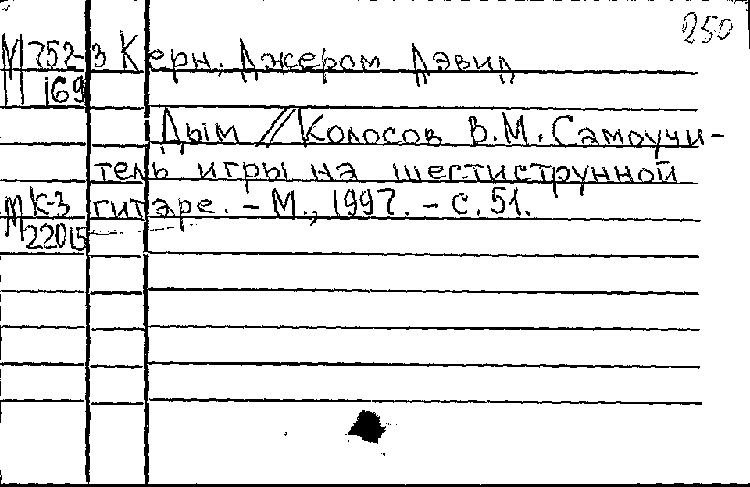 250
М 752-3 Керн, Джером Дэвид
169
Дым // Колосов В.М. Самоучи-
тель игры на шестиструнной
М К-3 гитаре. - М., 1997. - С. 51.
22015